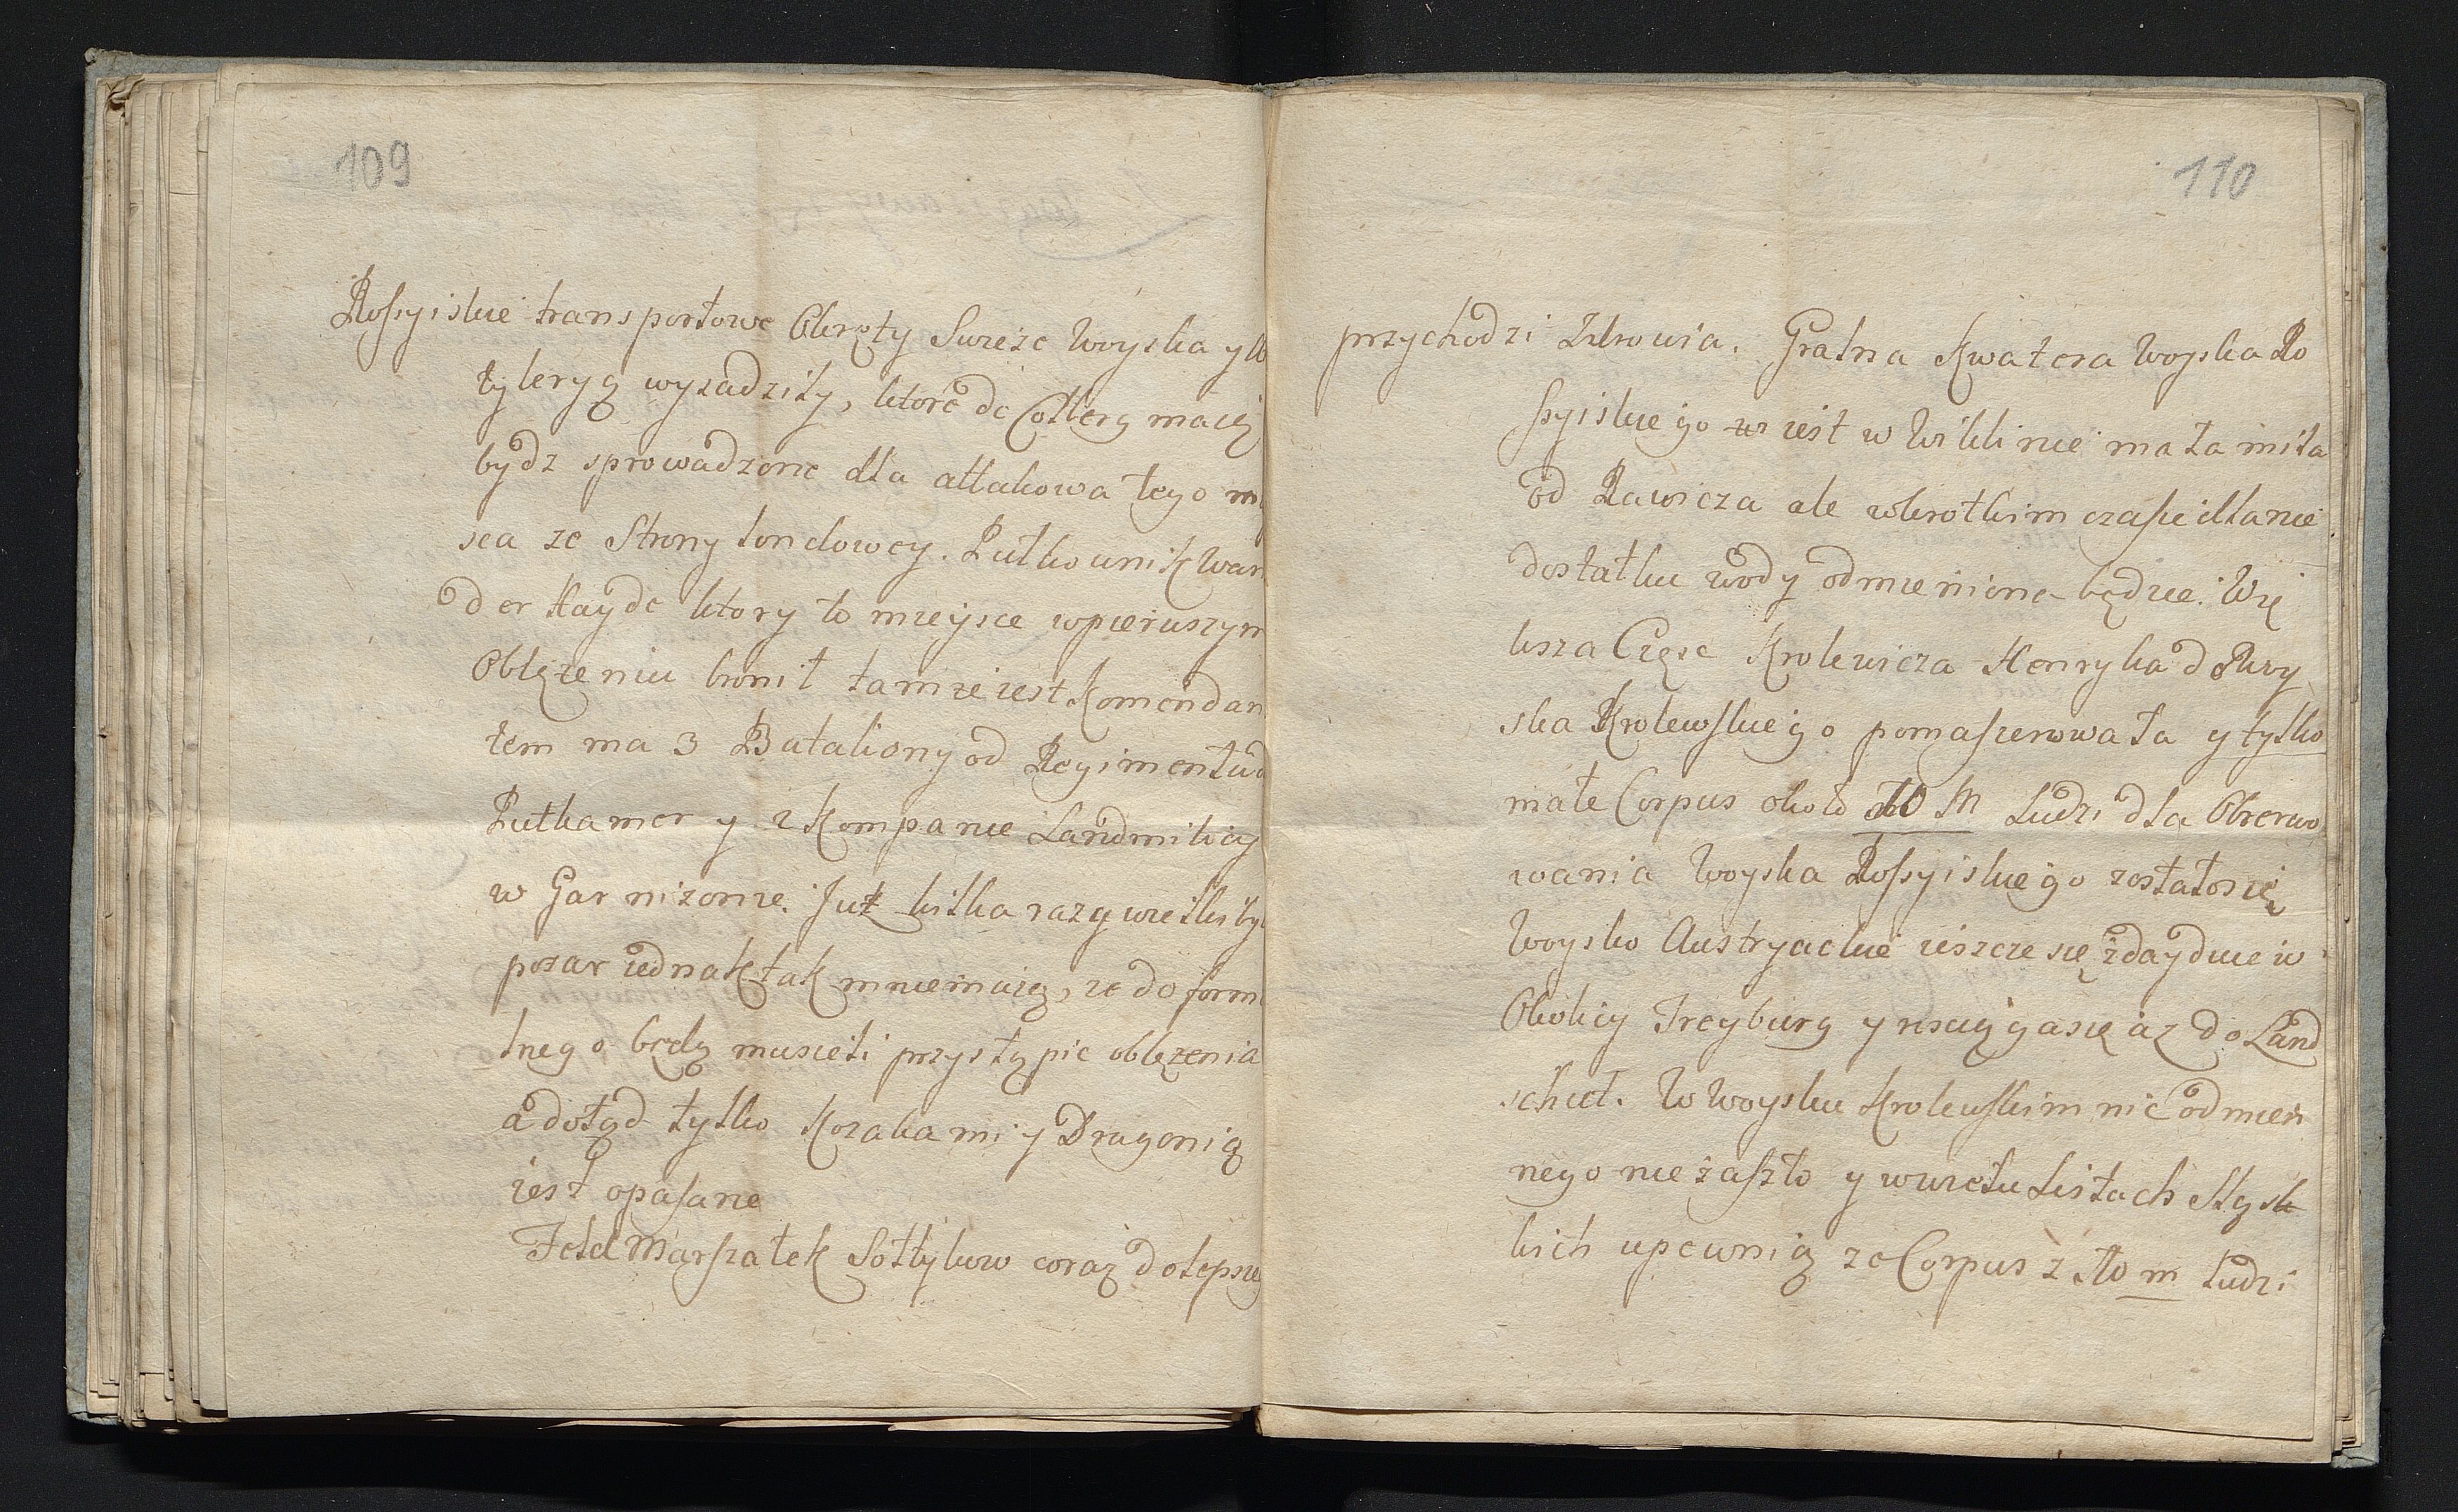 109
Rossyiskie transportowe Okręty Swieże Woyska y
tyleryą wysadziły, ktore do Colberg maią
bydz sprowadzone dla attakowa tego
sca ze Strony londowey. Pułkownik Wan
der Hayde ktory to mieysce wpierwszym
Oblężeniu bronił tamże iest Komendan
tem ma 3 Bataliony od Regimentu
Putkamer y 2 Kompanie Landmilicy
w Garnizonie. Już kilka razy wielki był
pozar iednak tak mniemaią, ze do form
lnego będą musieli przystąpic oblężenia
a dotąd tylko Kozakami y Dragonią
iest opasane
Feld Marszałek Sołtykow coraz dolepsze
110
przychodzi Zdrowia. Gralna Kwatera Woyska Ro
ssyiskiego iest w Wiklinie mała mila
od Rawicza ale wkrotkim czasie dla nie
dostatku wody odmieniona będzie. Wię
ksza Częsc Krolewicza Henryka do Woy
ska Krolewskiego pomaszerowała y tylko
małe Corpus około 10 M Ludzi dla Obserwo
wania Woyska Rossyiskiego zostało się
Woysko Austryackie ieszcze się zdayduie w
Okolicy Freyburg y rsciąga się az do Land
schut. W Woysku Krolewskim nic odmien
nego nie zaszło y wwielu Listach Sląsk
kich upewnią ze Corpus z 10 m ludzi